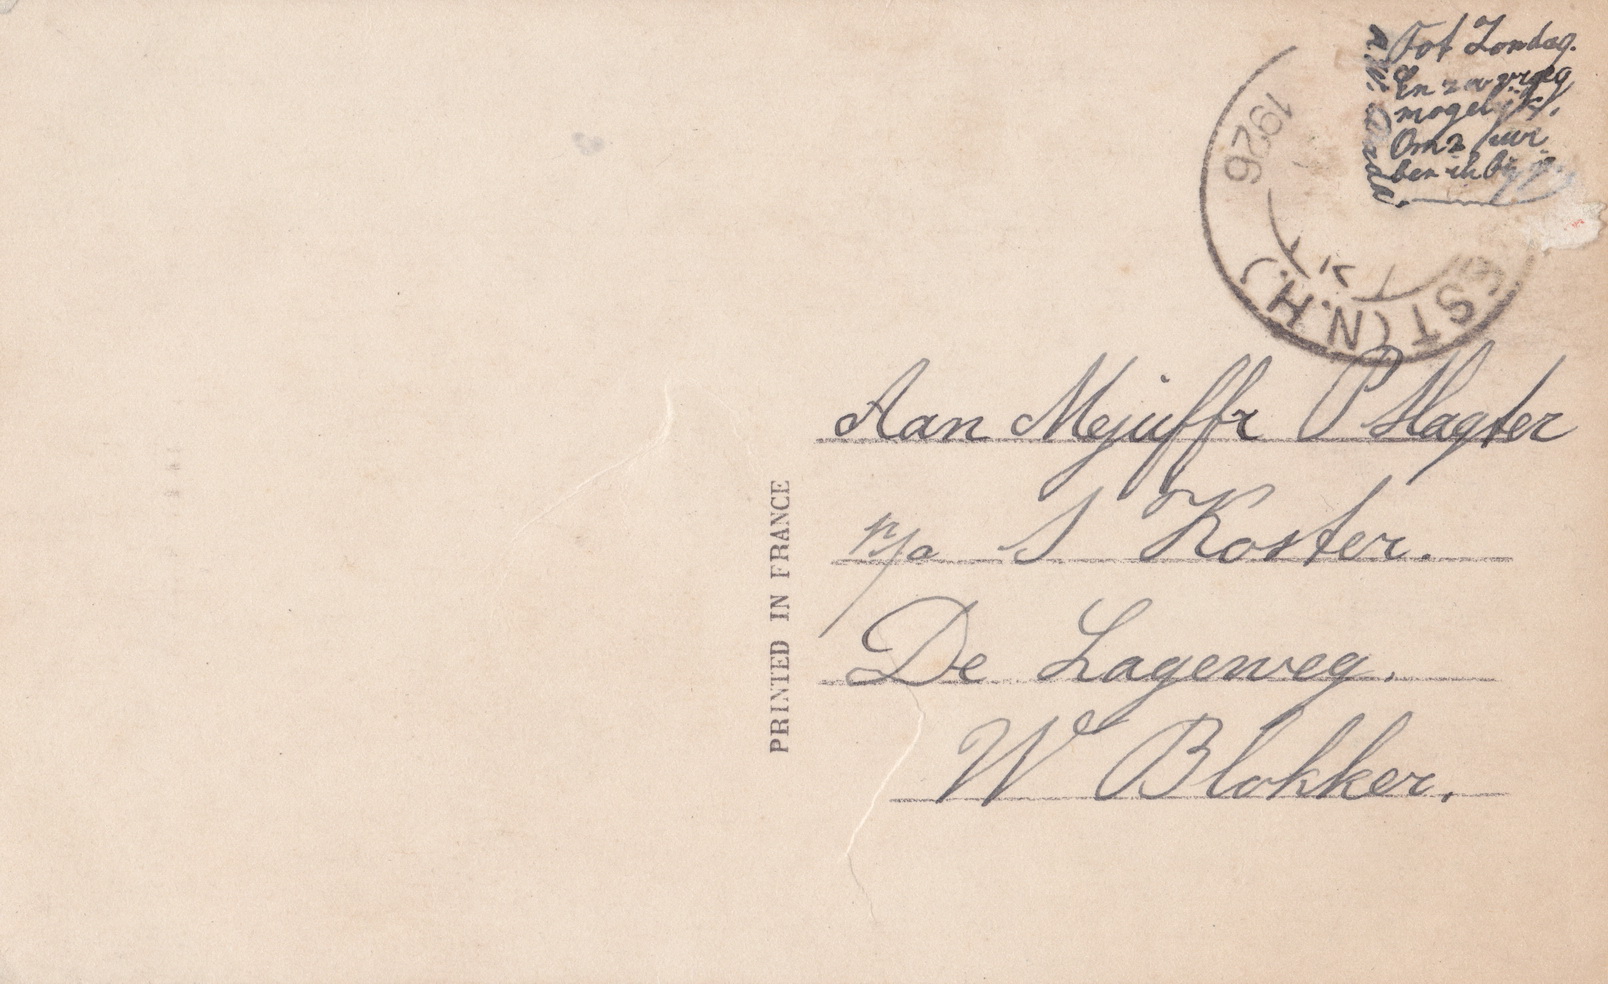 Tot Zondag.
En zoo vroeg
mogelijk.
Om 2 uur
ben ik bij je.
1926
EST (N.H.)
Aan Mejuffr P Slagter
p/a S Koster.
De Lageweg.
W Blokker.
PRINTED IN FRANCE